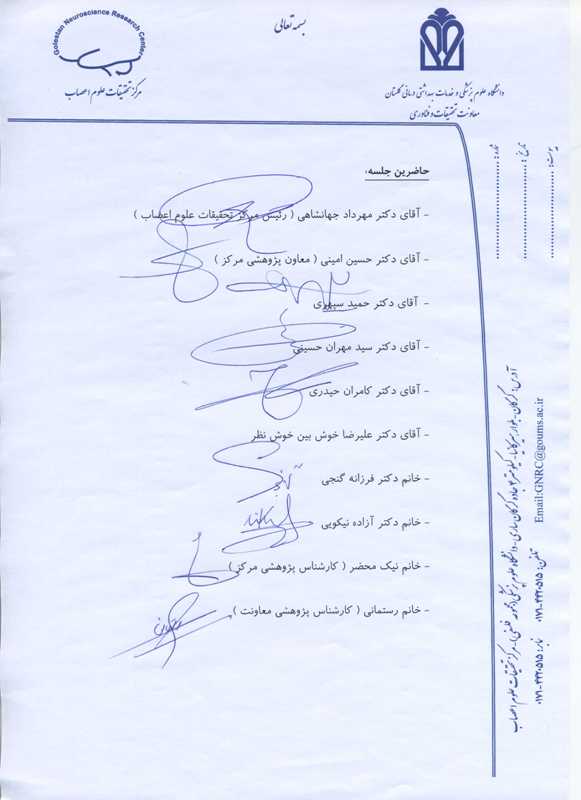 بسمه تعالی
Golestan Neuroscience Research Center
مرکز تحقیقات علوم اعصاب
دانشگاه علوم پزشکی و خدمات بهداشتی درمانی گلستان
معاونت تحقیقات و فناوری
شماره:
تاریخ:
پیوست:
حاضرین جلسه:
- آقای دکتر مهرداد جهانشاهی ( رئیس مرکز تحقیقات علوم اعصاب )
- آقای دکتر حسین امینی ( معاون پژوهشی مرکز )
- آقای دکتر حمید سپهری
- آقای دکتر سید مهران حسینی
- آقای دکتر کامران حیدری
- آقای دکتر علیرضا خوش بین خوش نظر
- خانم دکتر فرزانه گنجی
- خانم دکتر آزاده نیکویی
- خانم نیک محضر ( کارشناس پژوهشی مرکز )
- خانم رستمانی ( کارشناس پژوهشی معاونت )
آدرس: گرگان-بلوار هیرکانیا-کیلومتر ۴ جاده گرگان ساری-دانشگاه علوم پزشکی-مرکز تحقیقات علوم اعصاب
تلفن: ۰۱۷۱-۴۴۲۰۵۱۵ نمابر: ۰۱۷۱-۴۴۲۰۵۱۵
Email:GNRC@goums.ac.ir